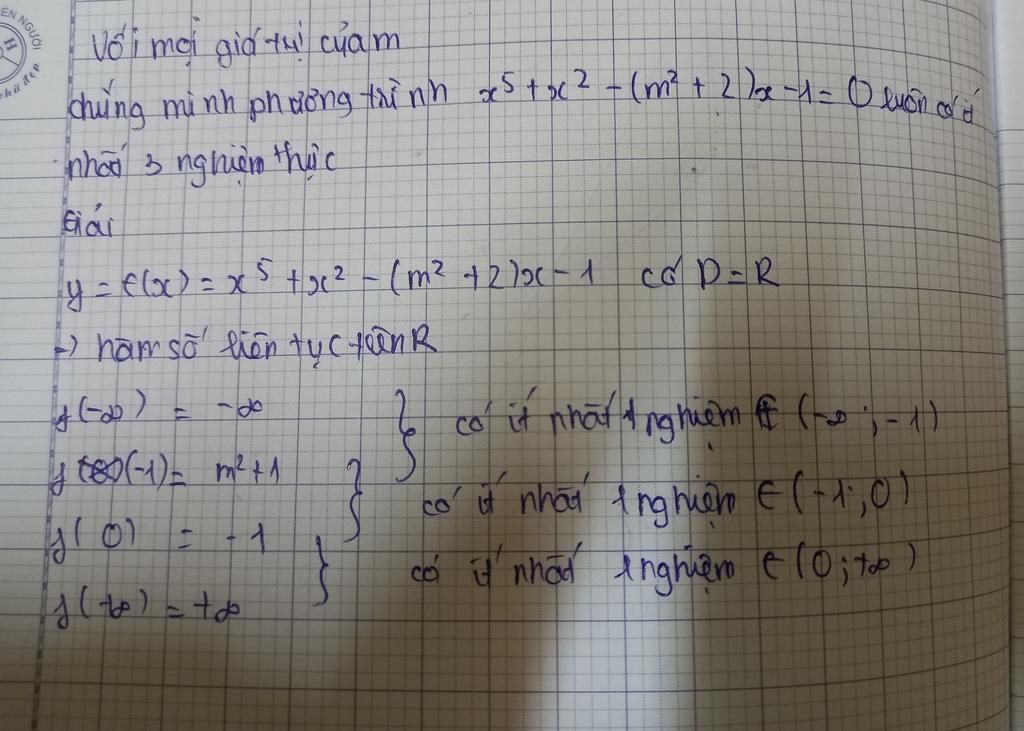 ÊN NGƯỜI
H
Với mọi giá trị của m
chứng minh phương trình x⁵ + x² - (m² + 2)x - 1 = 0 luôn có ít
nhất 3 nghiệm thực
Giải
y = f(x) = x⁵ + x² - (m² + 2)x - 1 có D = R
-) hàm số liên tục trên R
f(-∞) = -∞ } có ít nhất 1 nghiệm ∈ (-∞; -1)
f(-1) = m² + 1 } có ít nhất 1 nghiệm ∈ (-1; 0)
f(0) = -1 } có ít nhất 1 nghiệm ∈ (0; +∞)
f(+∞) = +∞